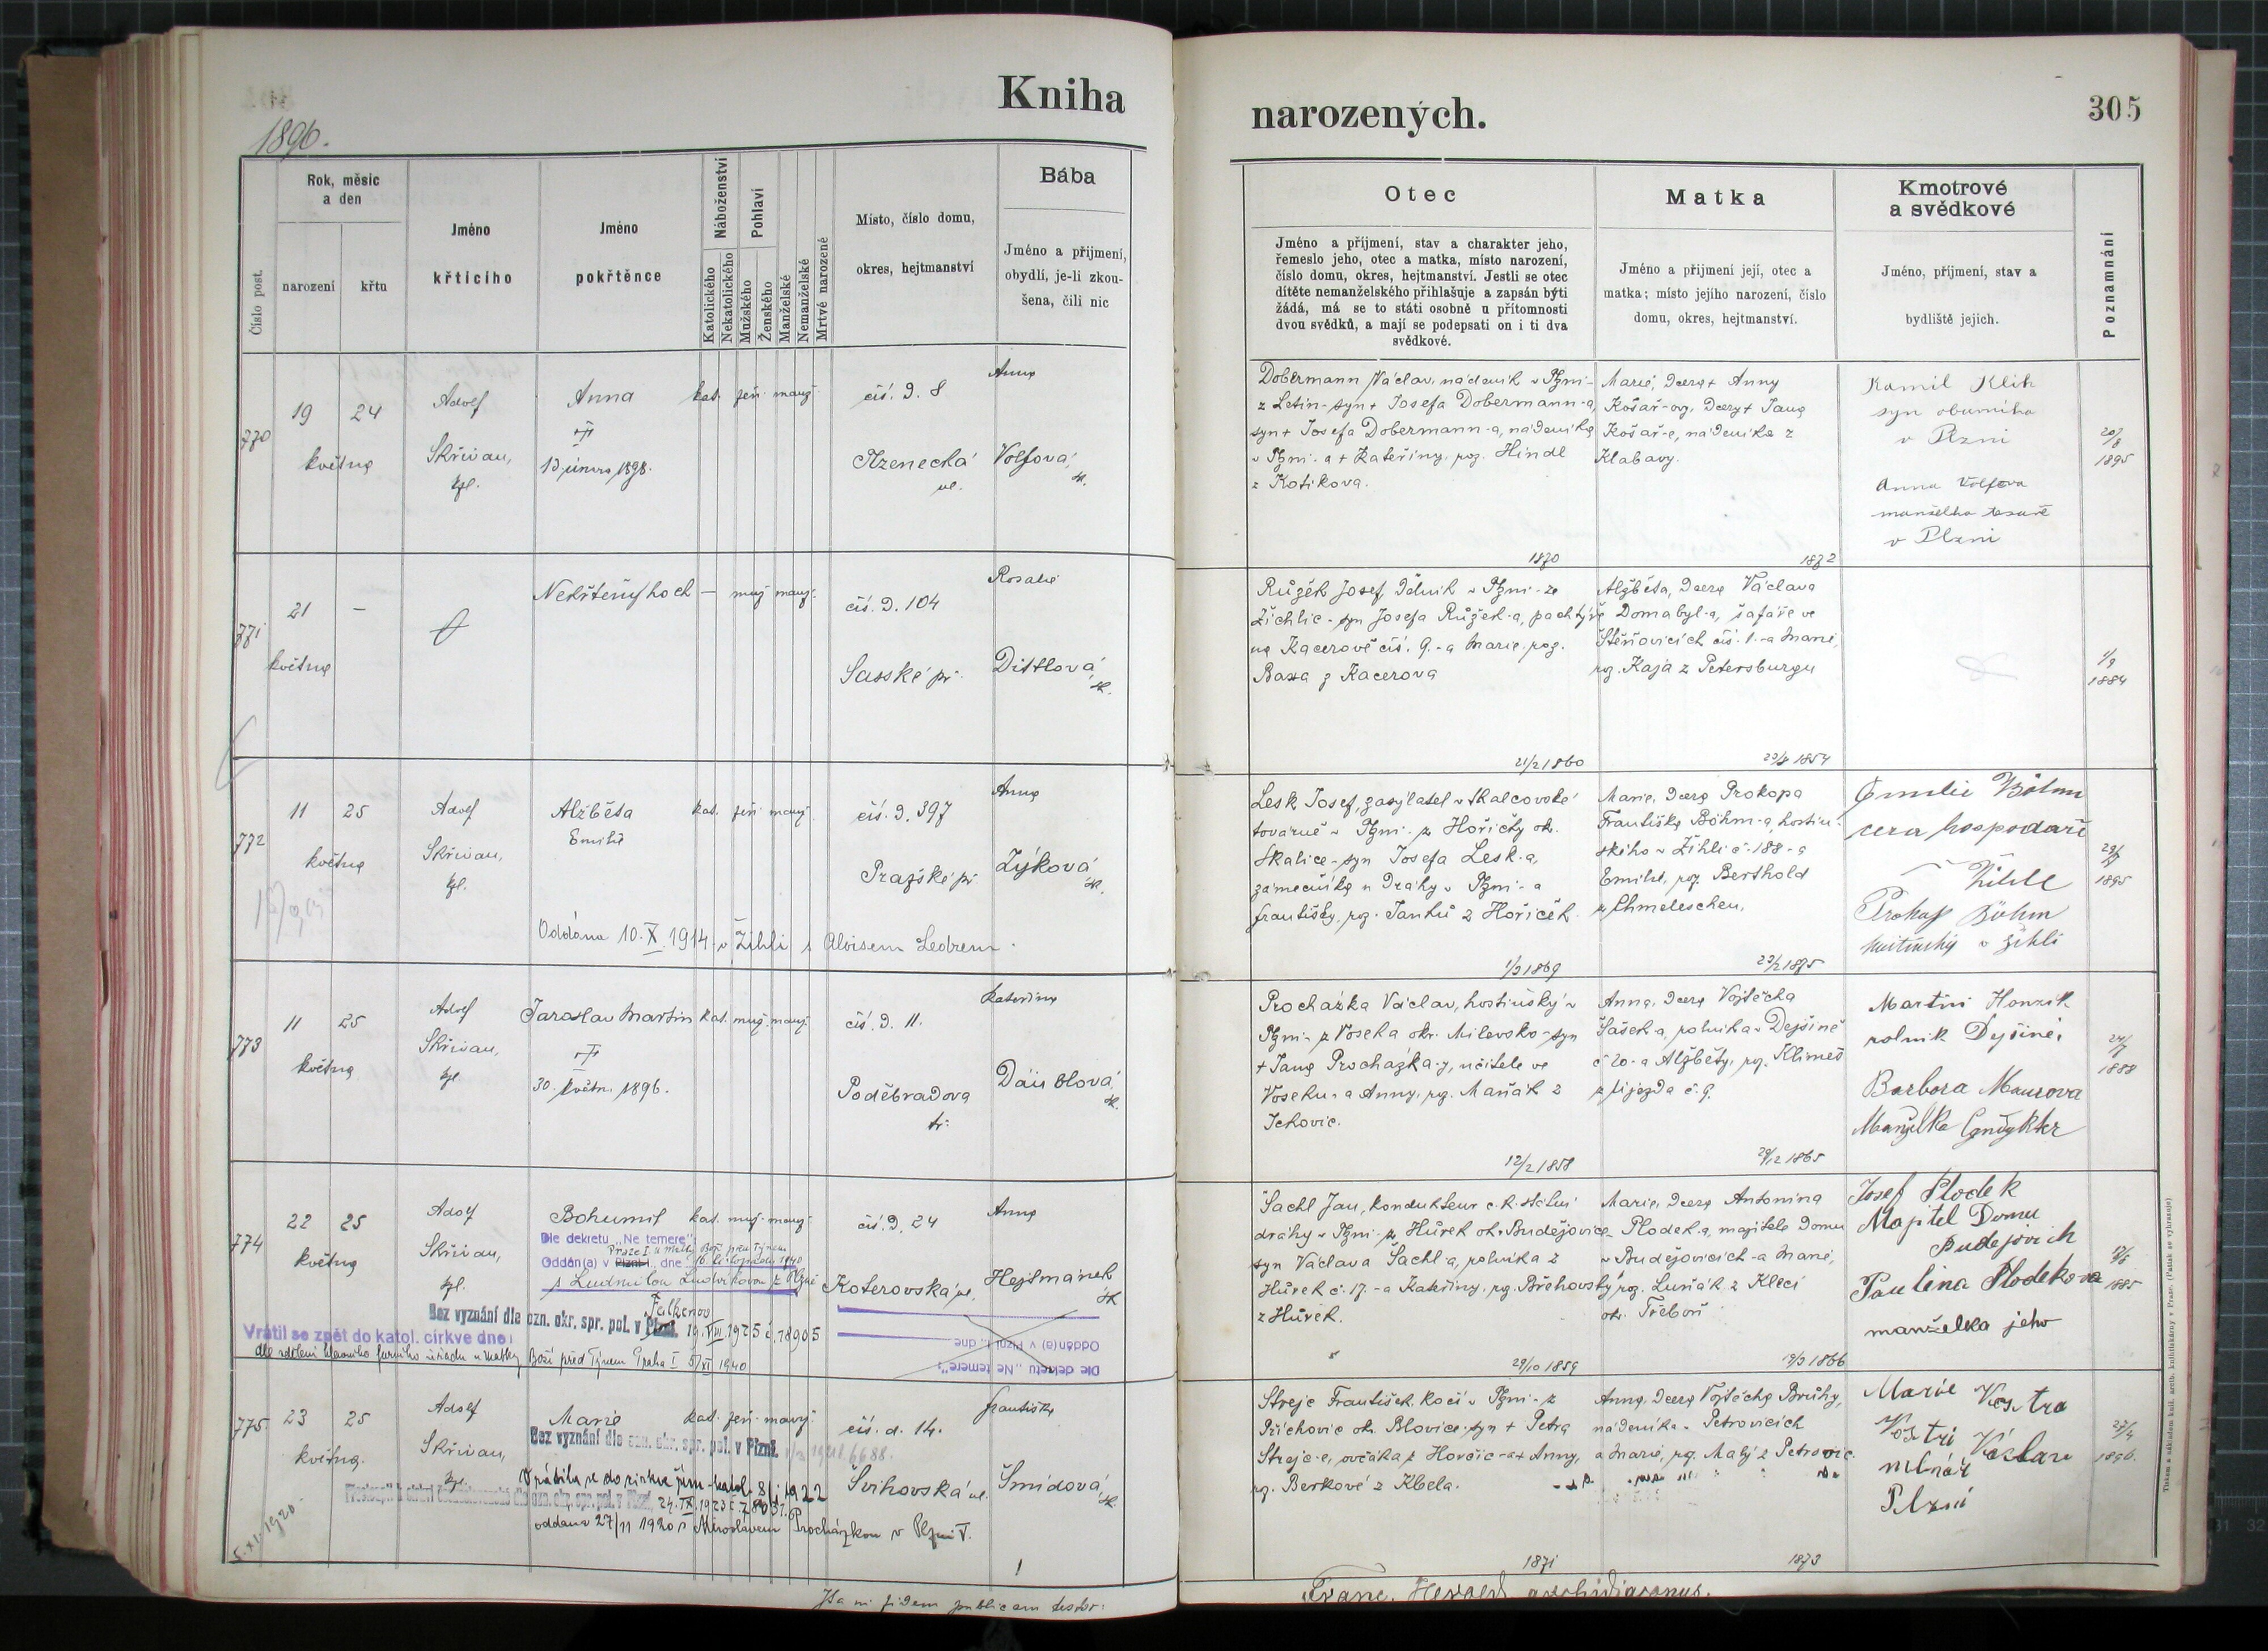 Kniha
narozených.
305
1896.
Číslo post.
Rok, měsíc
a den
narození
křtu
Jméno
křtícího
Jméno
pokřtěnce
Náboženství
Katolického
Nekatolického
Pohlaví
Mužského
Ženského
Manželské
Nemanželské
Mrtvé narozené
Místo, číslo domu,
okres, hejtmanství
Bába
Jméno a příjmení,
obydlí, je-li zkou-
šena, čili nic
Otec
Jméno a příjmení, stav a charakter jeho,
řemeslo jeho, otec a matka, místo narození,
číslo domu, okres, hejtmanství. Jestli se otec
dítěte nemanželského přihlašuje a zapsán býti
žádá, má se to státi osobně u přítomnosti
dvou svědků, a mají se podepsati on i ti dva
svědkové.
Matka
Jméno a příjmení její, otec a
matka; místo jejího narození, číslo
domu, okres, hejtmanství.
Kmotrové
a svědkové
Jméno, příjmení, stav a
bydliště jejich.
Poznamnání
770
19
24
května
Adolf
Skřivan,
kpl.
Anna
13 února 1898.
kat. žen. manž.
čís. d. 8
Anna
Volfová
Dobermann Václav, nádeník v Plzni-
z Letin-syn + Josefa Dobermann-a,
syn + Josefa Dobermann-a, nádeníka
v Plzni-a + Kateřiny, roz. Hindl
z Kotikova.
1870
Marie, dcera + Anny
Košař-ovy, dcery + Jana
Košař-e, nádeníka z
Klabavy.
1872
Kamil Klik
v Plzni
Anna Volfova
manželka tesaře
v Plzni
20/8
1895
771
21
-
května
Nekřtěný hoch
— muž. manž.
čís. d. 104
Sasské př.
Rosalie
Dittlová
Růžek Josef, dělník v Plzni-ze
Žichlic-syn Josefa Růžek-a, pachtýře
na Kacerově čís. 9.-a Marie roz.
Baxa z Kacerova
21/2 1860
Alžběta, dcera Václava
Domabyl-a, šafáře ve
Štěňovicích čís. 1.-a Marie,
roz. Kaja z Petersburgu
1/9
1884
772
11
25
května
Adolf
Skřivan,
kpl.
Alžběta
Emilie
kat. žen. manž.
čís. d. 397
Pražské př.
Anna
Zýková
Oddána 10. X. 1914 v Žihli s Aloisem Ledrem.
Lesk Josef, zasýlatel v Škalcovské
továrně v Plzni-z Hořičky ok.
Skalice-syn Josefa Lesk-a,
zámečníka u dráhy v Plzni-a
Františky, roz. Janků z Hořiček.
1/3 1869
Marie, dcera Prokopa
Františka Böhm-a, hostin-
ského v Žihli č. 188-a
Emilie, roz. Berthold
z Chmeleschen.
23/2 1875
Emilie Böhm
Prokop Böhm
hostinský v Žihli
1895
773
11
25
května
Adolf
Skřivan,
kpl
Jaroslav Martin
30. květn. 1896.
kat. muž. manž.
čís. d. 11.
Poděbradova
tř.
Kateřina
Däublová
Procházka Václav, hostinský v
Plzni-z Voseka okr. Milevsko-syn
+ Jana Procházka-y, učitele ve
Voseku-a Anny, roz. Maňák z
Jehovic.
12/2 1858
Anna, dcera Vojtěcha
Šašek-a, rolníka v Dejšině
č. 20-a Alžběty, roz. Klimeš
z Újezda č. 9.
29/12 1865
Martin Honzík
rolník Dyšiné
Barbora Maurova
1888
774
22
25
května
Adolf
Skřivan,
kpl.
Bohumil
kat. muž. manž.
čís. d. 24
Koterovská ul.
Anna
Hejtmánek
Dle dekretu „Ne temere":
Oddán(a) v Plzni I., dne 16. listopadu 1940
s Ludmilou Ludvíkovou z Plzně
Falkenov
Bez vyznání dle ozn. okr. spr. pol. v Plzni. 19. VIII. 1925 č. 78905
Vrátil se zpět do katol. církve dne:
dle sdělení hlavního farního úřadu u Matky Boží před Týnem Praha I 5/XI 1940
Oddán(a) v Plzni I., dne
Dle dekretu „Ne temere":
Šachl Jan, kondukteur c. k. státní
dráhy v Plzni-z Hůrek ok. Budějovice
syn Václava Šachl-a, rolníka z
Hůrek č. 17.-a Kateřiny, roz. Břehovský
z Hůrek.
29/10 1859
Marie, dcera Antonína
Plodek-a, majitele domu
v Budějovicích-a Marie,
roz. Luňák z Kleci
ok. Třeboň
19/3 1866
Josef Plodek
Majitel Domu
Budějovich
Paulina Plodekova
manželka jeho
1885
775.
23
25
května.
Adolf
Skřivan,
kpl.
Marie
kat. žen. manž.
čís. d. 14.
Švihovská ul.
Františka
Šmídová
Bez vyznání dle ozn. okr. spr. pol. v Plzni.
Vrátila se do církve řím-katol. 8/1 1922
oddána 27/11 1920 s Miroslavem Procházkou v Plzni V.
5. XI. 1920
Strejc František, kočí v Plzni-z
Příchovic ok. Blovice-syn + Petra
Strejc-e, ovčáka z Horčic-a + Anny,
roz. Berkové z Kbela.
1871
Anna, dcera Vojtěcha Bruhy,
nádeníka v Petrovicích
a Marie, roz. Malý z Petrovic.
1873
Marie Vostra
Vostrí Václav
mlnář
Plzni
27/4
1896.
Franc. Herold archidiaconus.